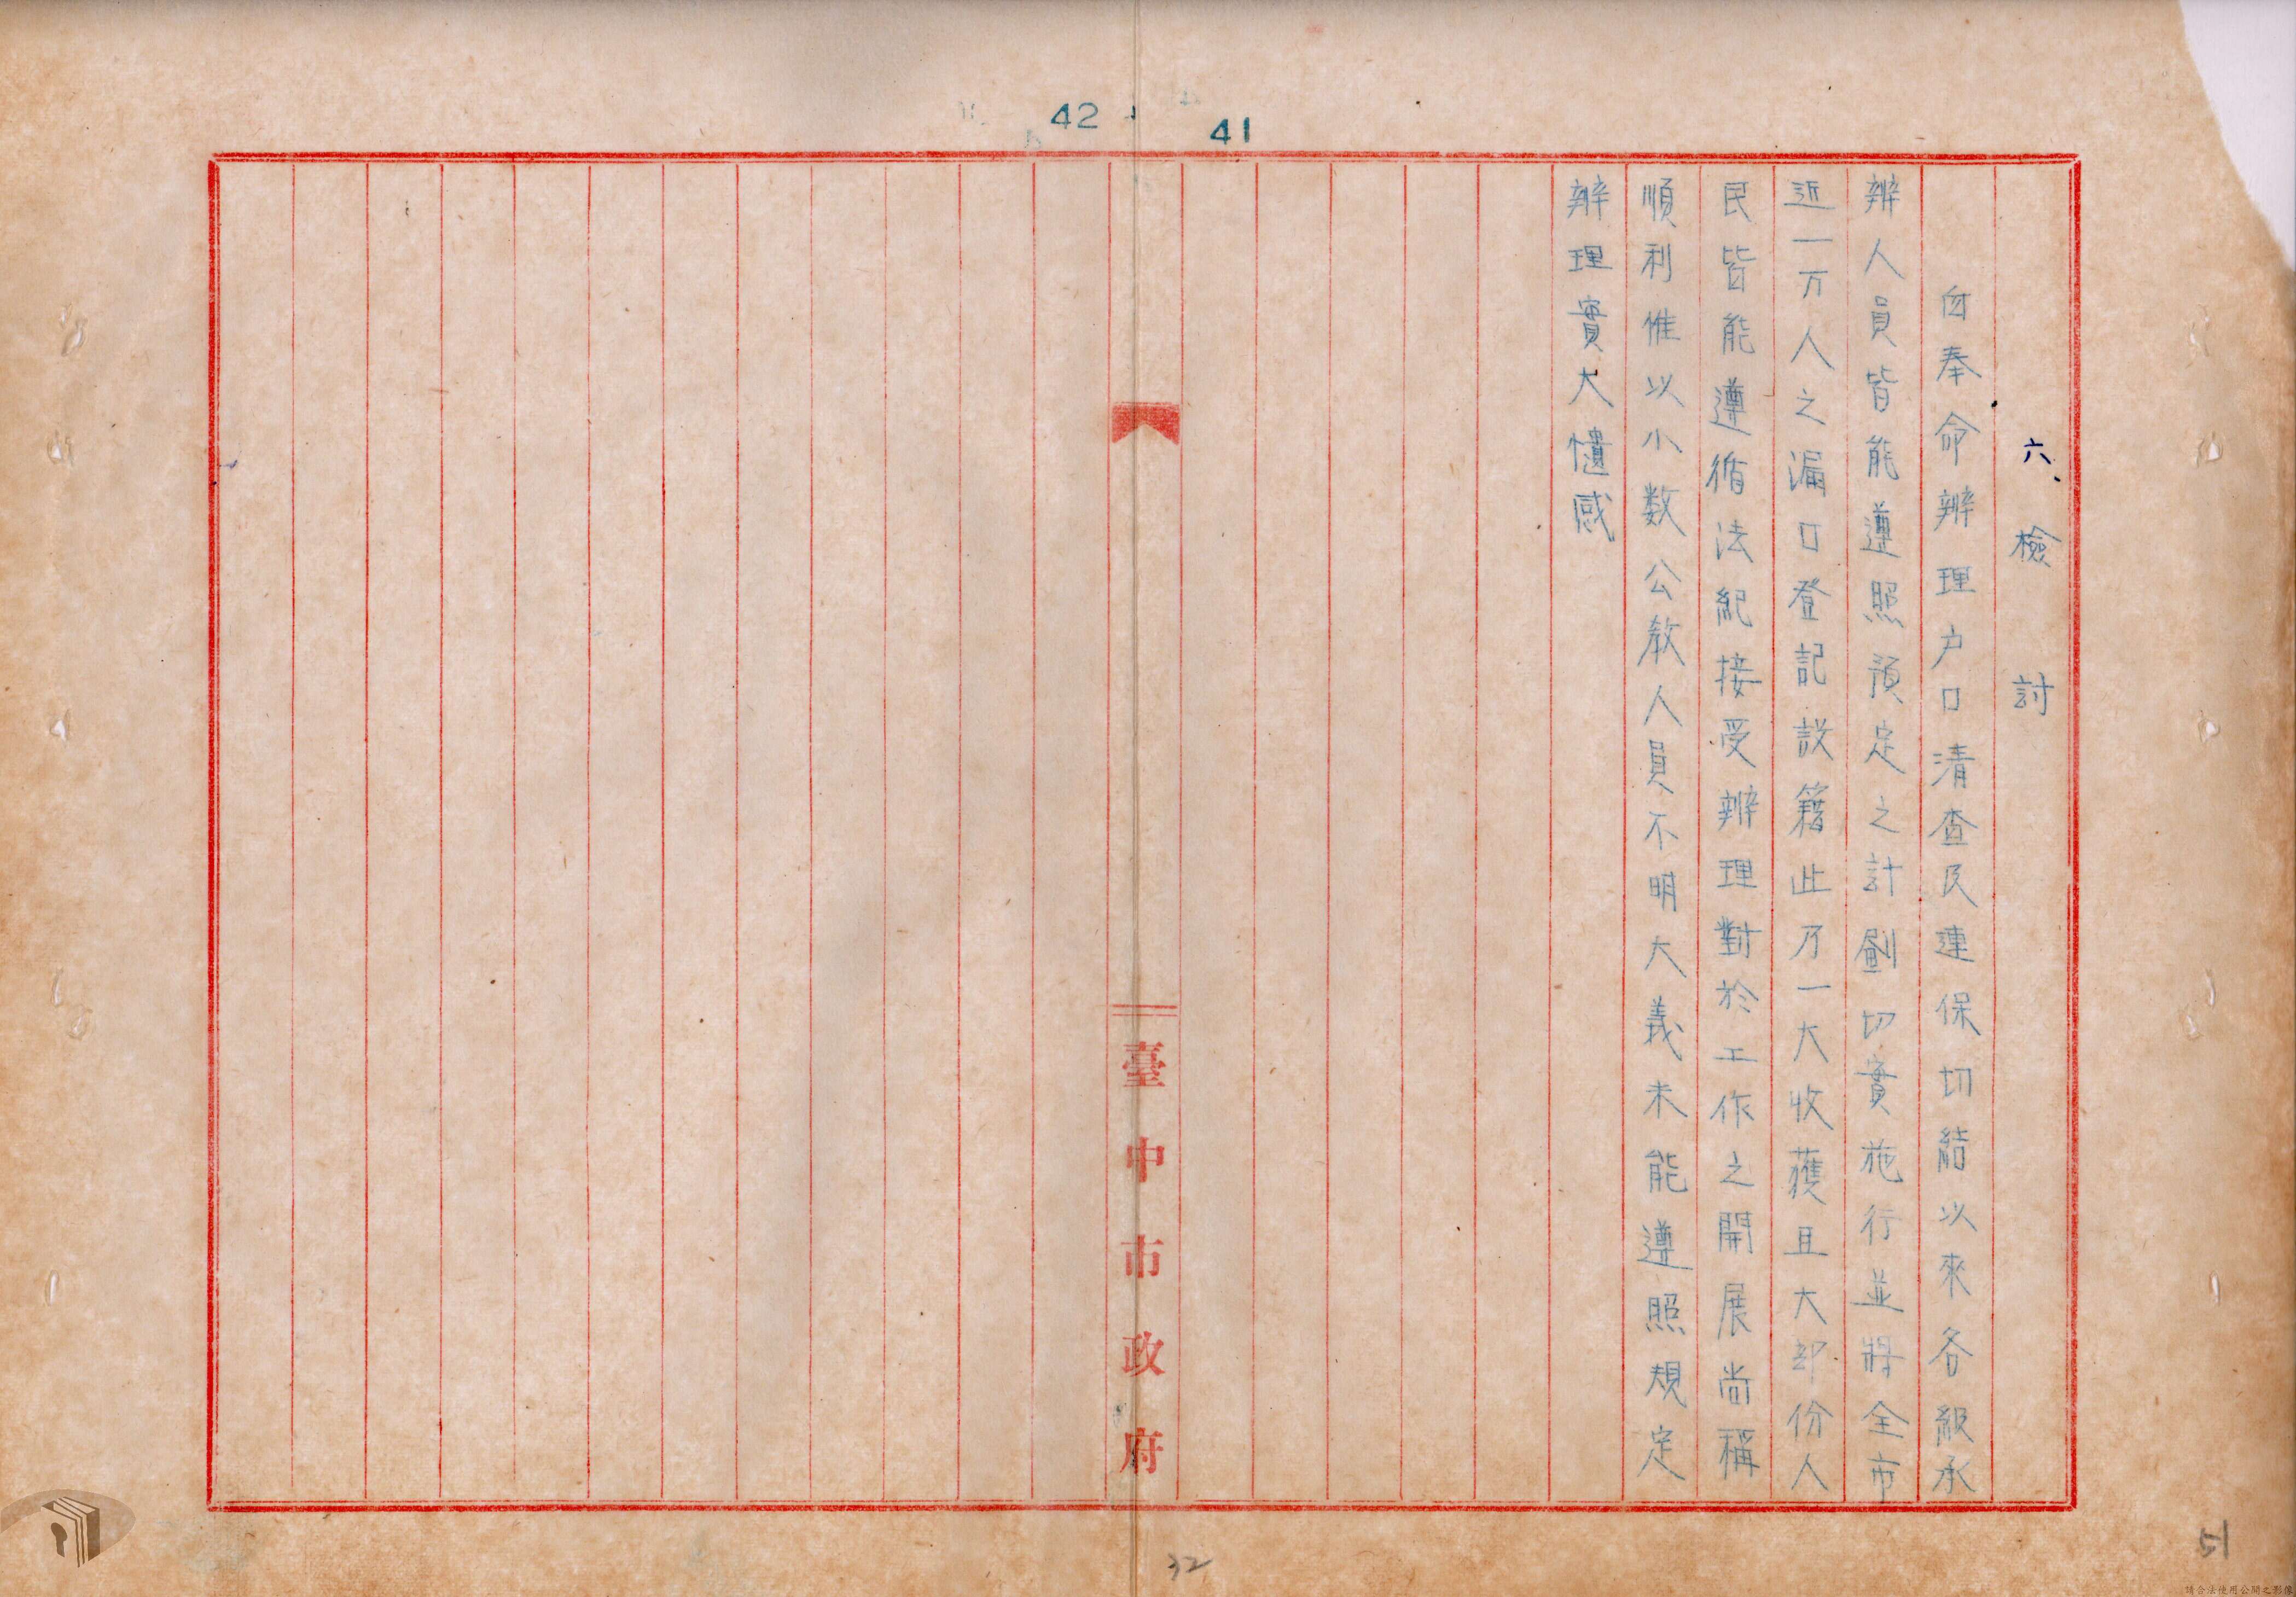 42
41
六、檢討
自奉命辦理户口清查及連保切結以來各級承
辦人員皆能遵照預定之計劃切實施行並將全市
近一万人之漏口登記設籍此乃一大收獲且大部份人
民皆能遵循法紀接受辦理對於工作之開展尚稱
順利惟以小数公教人員不明大義未能遵照規定
辦理實大憾感
臺中市政府
32
51
請合法使用公開之影像